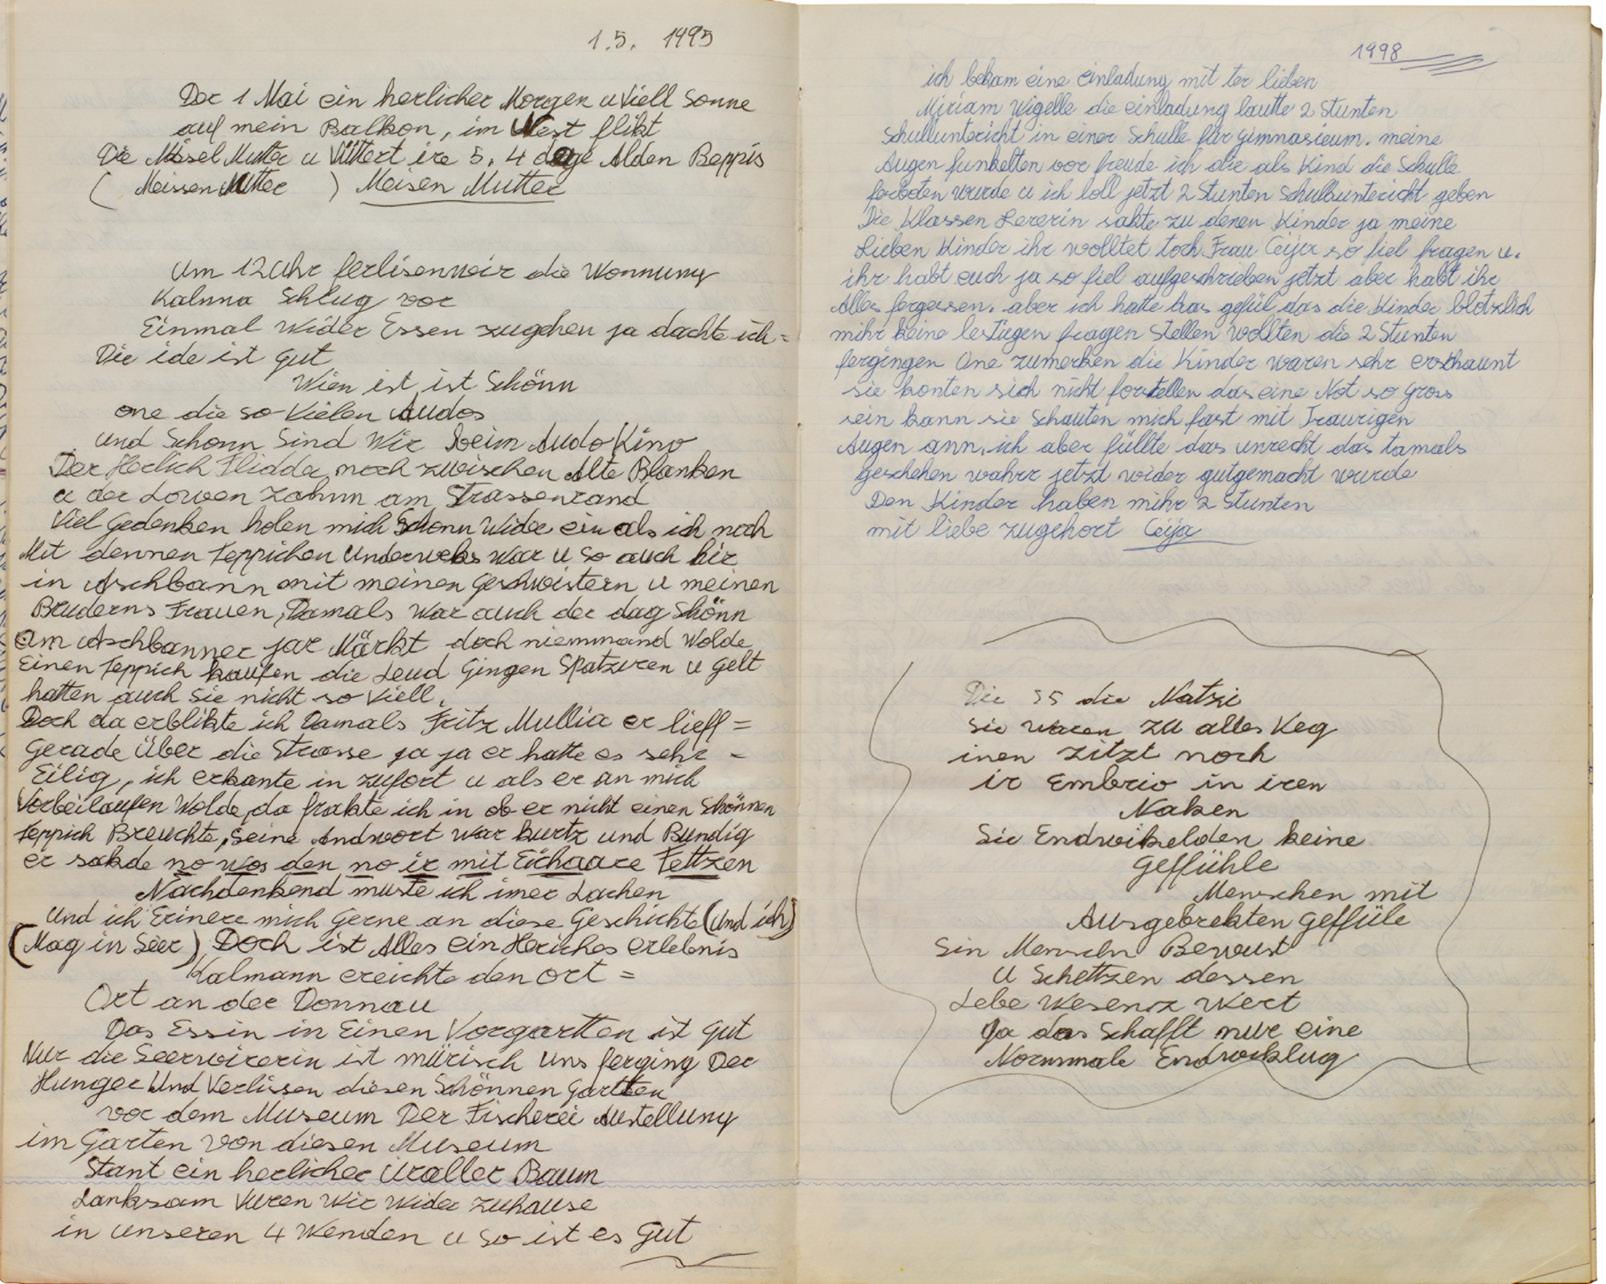 1.5. 1995
Der 1 Mai ein herlicher Morgen u Viell Sonne
auf mein Balkon, im Nest flikt
Die Meisel Mutter u Vüttert ire 5. 4 dage Alden Beppis
( Meissen Mutter ) Meisen Mutter
Um 12 Uhr ferlisen wir die Wonnung
Kalmna Schlug vor
Einmal Wider Essen zugehen ja dachte ich =
Die ide ist gut
Wien ist, ist Schönn
one die so Vielen Audos
und Schonn Sind Wir beim Audo Kino
Der Herlich Flidda, noch zwischen Alte Blanken
u der Lowen zahnn am Strassenrand
Viel Gedenken holen mich Schonn Wider ein als ich noch
Mit dennen Teppichen Underweks War u so auch hir
in Aschbann mit meinen Geschwistern u meinen
Bruderns Frauen, Damals War auch der dag Schönn
am Aschbanner jar Märkt doch niemmand Wolde
Einen Teppich kaufen die Leud Gingen Spatziren u gelt
hatten auch Sie nicht so Viell.
Doch da erblikte ich Damals Fritz Mullia er lieff =
Gerade Über die Strasse ja ja er hatte es sehr -
Eilig, ich erkante in zufort u als er an mich
Vorbeilaufen Wolde, da frakte ich in ob er nicht einen Schönnen
Teppich Breuchte, Seine Andwort war kurtz und Bundig
er sakde no wos den no ir mit Eichaare Fettzen
Nachdenkend muste ich imer Lachen
und ich Erinere mich Gerne an diese Geschichte (und ich)
(Mag in Seer) Doch ist Alles ein Herliches erlebnis
Kalmann ereichte den ort =
Ort an der Donnau
Das Essin in Einen Vorgartten ist gut
Nur die Seerwirerin ist mürisch uns ferging Der
Hunger Und Verlissen diesen Schönnen Gartten
vor dem Museum Der Fischerei Austellung
im Garten von diesen Museum
Stant ein herlicher Uraller Baum
Lanksam Vuren Wir Wider zuhause
in unseren 4 Wenden u so ist es Gut
1998
ich bekam eine einladung mit ter lieben
Miriam Wigelle die einladung lautte 2 Stunten
Schullunterricht in einer Schulle für Gimnasieum. meine
Augen funkelten vor freude ich die als Kind die Schulle
forboten wurde u ich soll jetzt 2 Stunten Schullunterricht geben
Die Klassen Lererin sakte zu denen Kinder ja meine
Lieben Kinder ihr wolltet toch Frau Ceija so fiel fragen u.
ihr habt euch ja so fiel aufgeschrieben jetzt aber habt ihr
Alles fergessen. aber ich hatte das gefül das die Kinder blötzlich
mihr keine lestigen fragen Stellen wollten die 2 Stunten
fergingen One zumerken die Kinder waren sehr ersthaunt
sie konten sich nicht forstellen das eine Not so Gross
sein kann sie Schauten mich fast mit Traurigen
Augen ann, ich aber füllte das unrecht das tamals
geschehen wahrr jetzt wider gutgemacht wurde
Den Kinder haben mihr 2 Stunten
mit liebe zugehort Ceija
Die SS die Natsi
Sie waren zu alles Veg
inen zitzt noch
ir Embrio in iren
Naken
Sie Endwikelden keine
Geffühle
Menschen mit
Ausgebrekten Geffüle
Sin Menschn Bewust
u Schettzen dessen
Lebe Wesens Wert
Ja das Schafft nur eine
Normmale Endwicklug